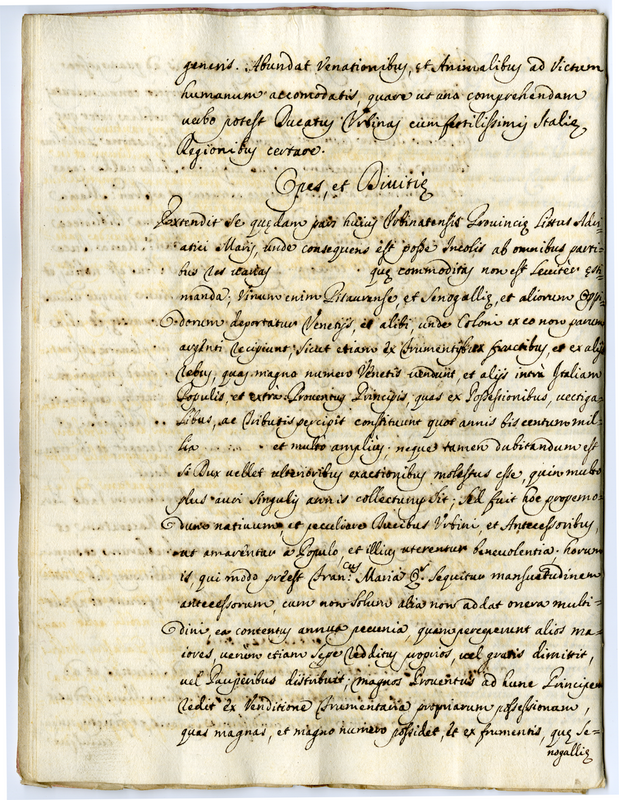 generis. Abundat Venationibus, et Animalibus ad Victum
humanum accomodatis, quare ut una comprehendam
verbo potest Ducatus Urbinas cum fertilissimis Italię
Regionibus certare.
Opes, et Divitię
Extendit se quędam pars huius Urbinatensis Provincię Littus Adri-
atici Maris, unde consequens est posse Incolis ab omnibus parti-
bus res que commoditas non est leviter ęsti
manda; Vinum enim Pisaurense et Senogallię, et aliorum Oppi-
dorum deportatur Venetijs, et alibi, unde Coloni ex eo non parum
argenti recipiunt; sicut etiam ex frumentis, ex fructibus, et ex alijs
rebus, quas magno numero Venetis vendunt, et alijs intra Italiam
Populis, et extra. Proventus Principis, quas ex Possessionibus, vectiga-
libus, ac Tributis percipit constituunt quot annis bis centum mil-
lia et multo amplius; neque tamen dubitandum est
si Dux vellet ulterioribus exactionibus molestus esse, quin multo
plus auri singulis annis collecturus sit; sed fuit hoc propemo-
dum nativum et peculiare Ducibus Urbini, et Antecessoribus,
ut amarentur a Populo et illius uterentur benevolentia; horum
is, qui modo pręest Fran.cus Maria 2.us sequitur mansuetudinem
antecessorum, cum non solum alia non addat onera multi-
dini, ea contentus annua pecunia, quam perceperunt alios ma-
iores, verum etiam sępe redditus proprios, vel gratis dimittit,
vel Pauperibus distribuit; magnos Proventus ad hunc Principem
redit ex Venditione frumentaria propriarum possessionum,
quas magnas, et magno numero possidet, et ex frumentis, quę Se-
nogallię